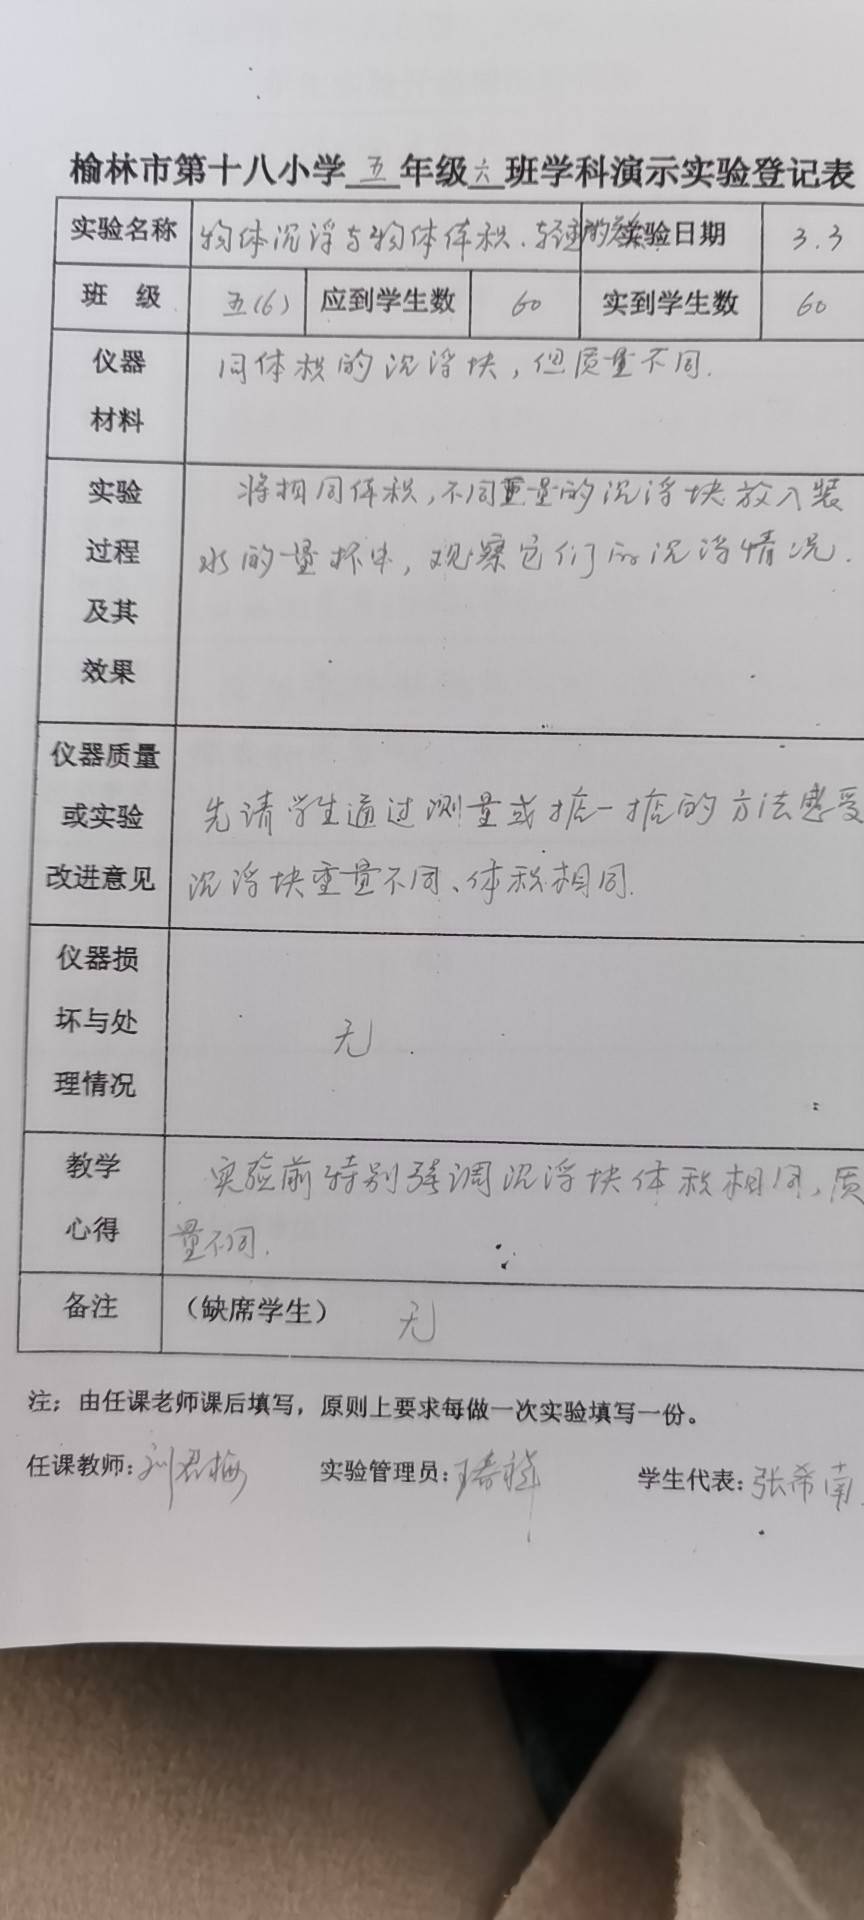 榆林市第十八小学五年级六班学科演示实验登记表
实验名称 物体沉浮与物体体积、轻重的关系 实验日期 3.3
班 级 五(6) 应到学生数 60 实到学生数 60
仪器
材料
同体积的沉浮块,但质量不同.
实验
过程
及其
效果
将相同体积,不同重量的沉浮块放入装
水的量杯中,观察它们的沉浮情况.
仪器质量
或实验
改进意见
先请学生通过测量或掂一掂的方法感受
沉浮块重量不同、体积相同.
仪器损
坏与处
理情况
无
教学
心得
实验前特别强调沉浮块体积相同,质
量不同.
备注 (缺席学生) 无
注:由任课老师课后填写,原则上要求每做一次实验填写一份。
任课教师:刘君梅 实验管理员: 学生代表:张希南